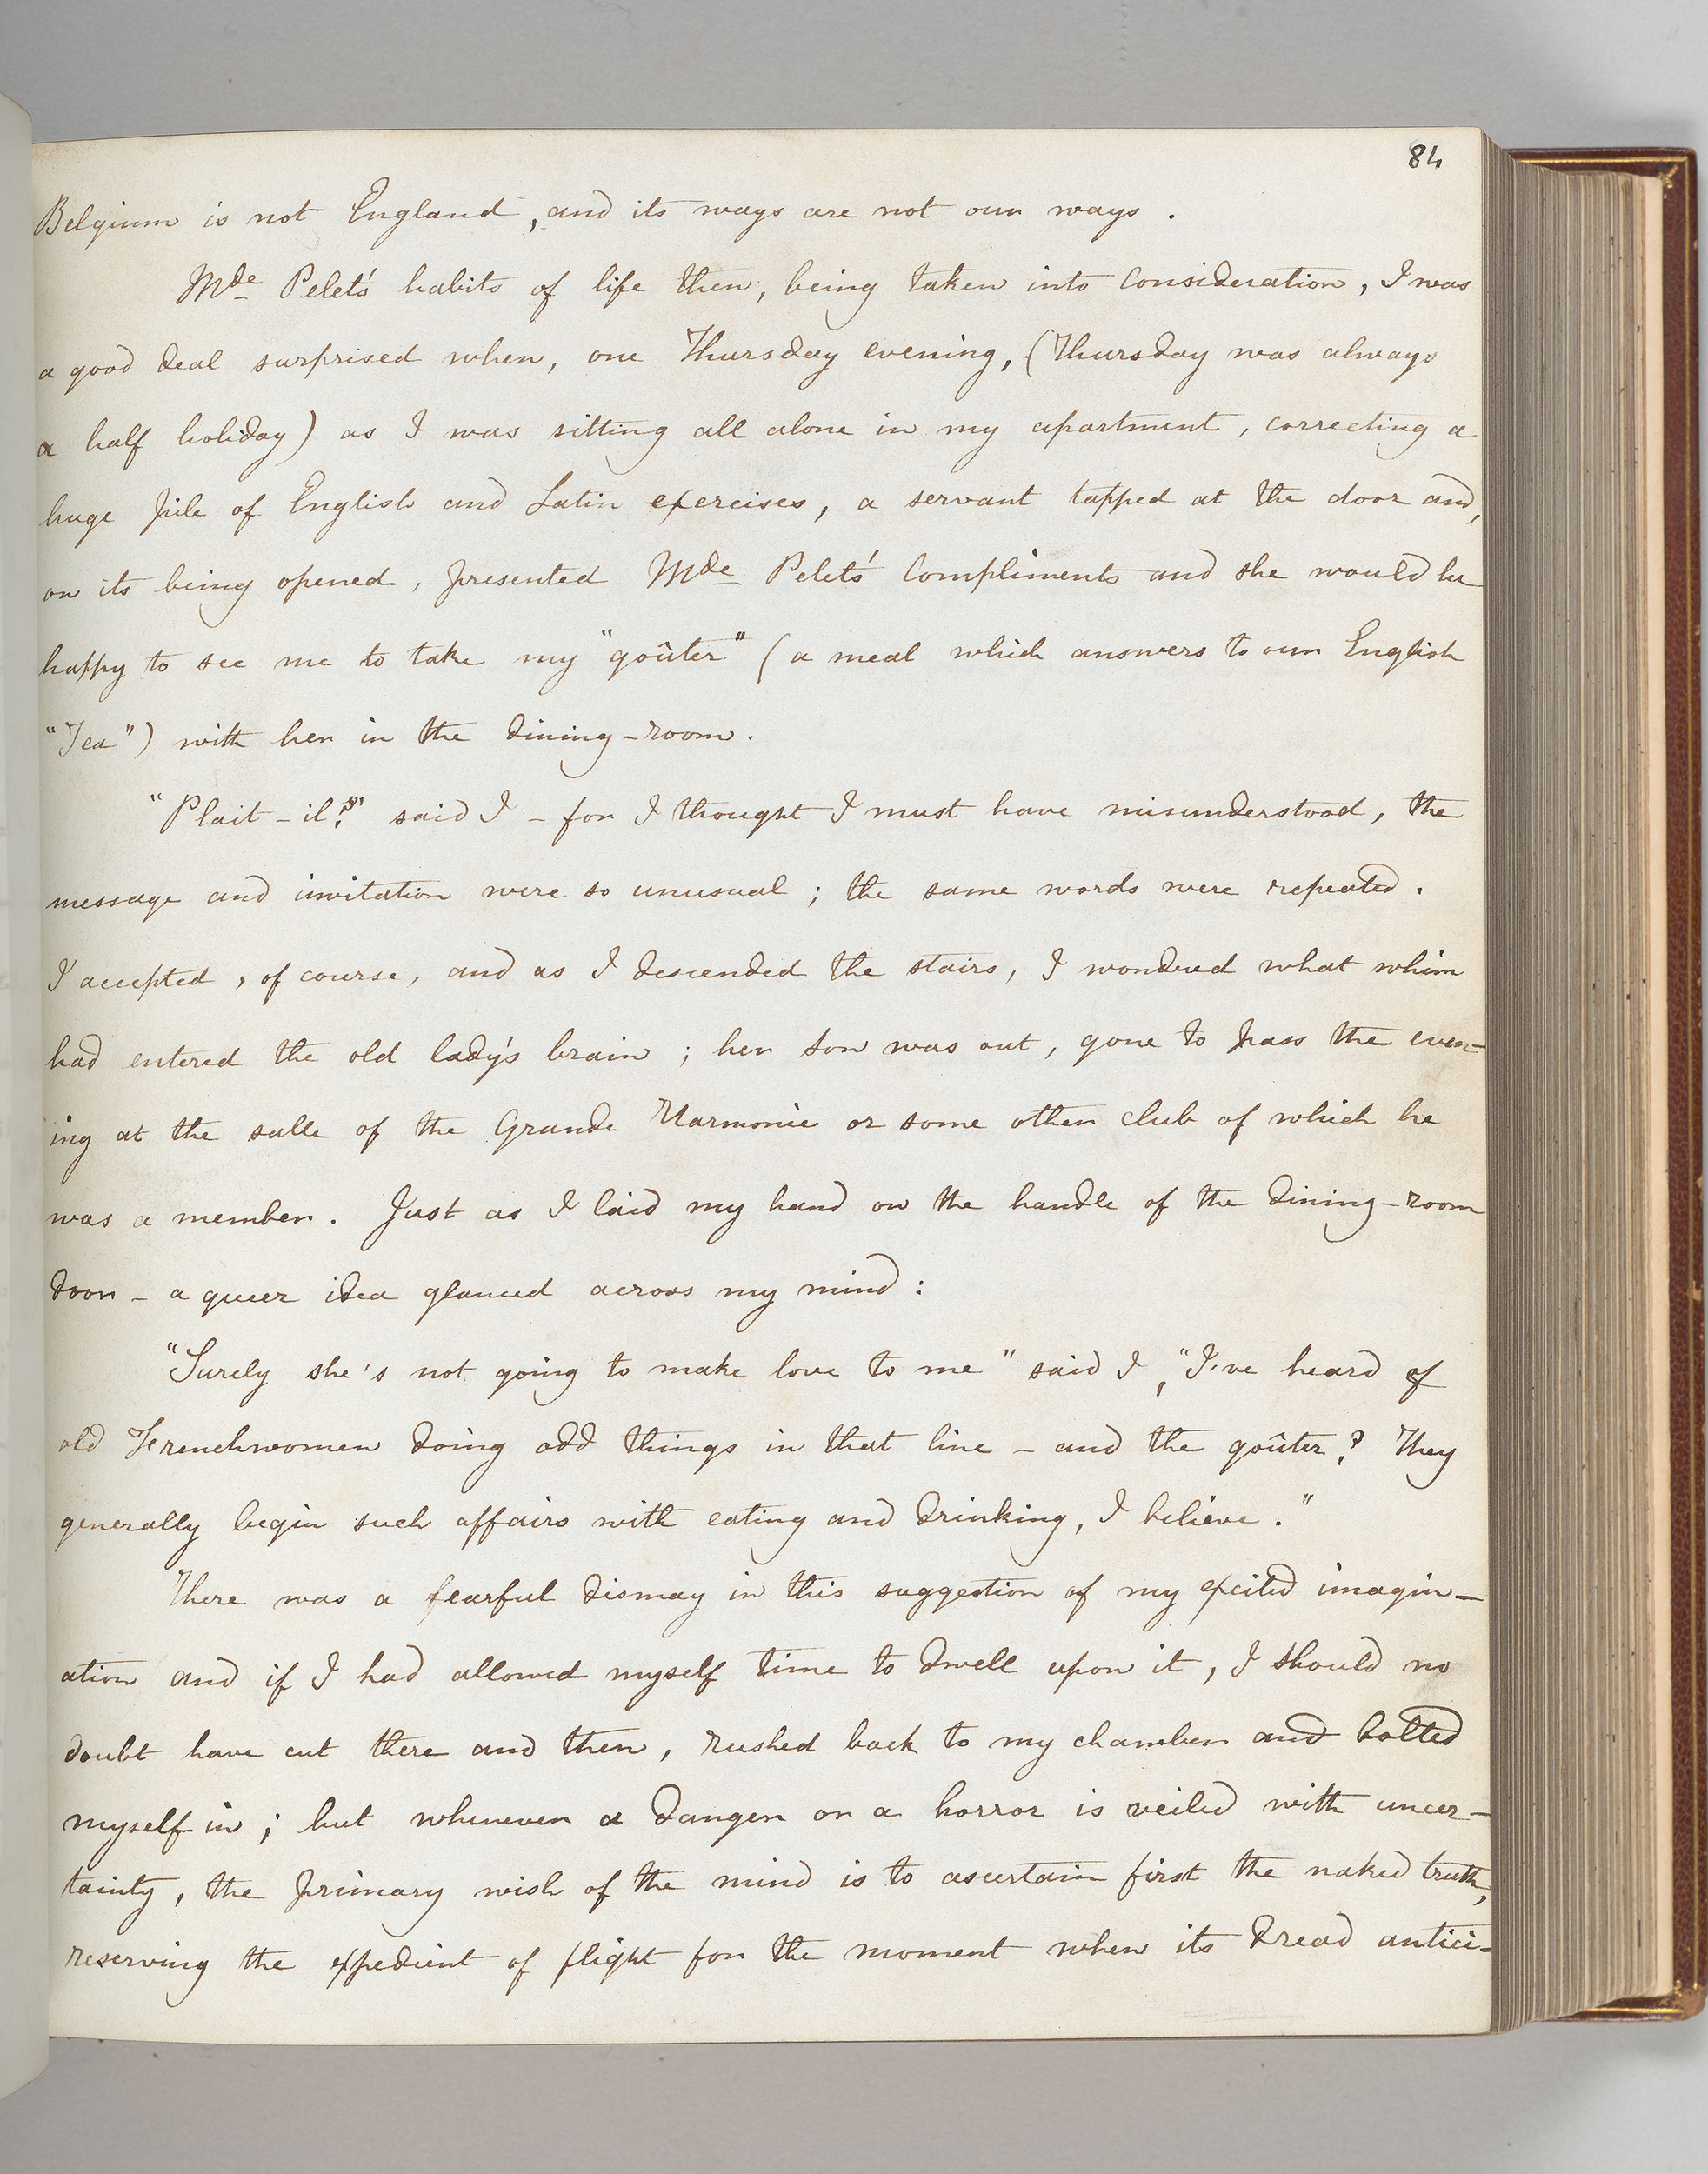 84
Belgium is not England, and its ways are not our ways.
Mde Pelet's habits of life then, being taken into consideration, I was
a good deal surprised when, one Thursday evening, (Thursday was always
a half holiday) as I was sitting all alone in my apartment, correcting a
huge pile of English and Latin exercises, a servant tapped at the door and,
on its being opened, presented Mde Pelet's compliments and she would be
happy to see me to take my "goûter" (a meal which answers to our English
"Tea") with her in the dining-room.
"Plait-il?" said I - for I thought I must have misunderstood, the
message and invitation were so unusual; the same words were repeated.
I accepted, of course, and as I descended the stairs, I wondered what whim
had entered the old lady's brain; her son was out, gone to pass the even-
ing at the salle of the Grande Harmonie or some other club of which he
was a member. Just as I laid my hand on the handle of the dining-room
door - a queer idea glanced across my mind:
"Surely she's not going to make love to me" said I, "I've heard of
old Frenchwomen doing odd things in that line - and the goûter? They
generally begin such affairs with eating and drinking, I believe."
There was a fearful dismay in this suggestion of my excited imagin-
ation and if I had allowed myself time to dwell upon it, I should no
doubt have cut there and then, rushed back to my chamber and bolted
myself in; but whenever a danger or a horror is veiled with uncer-
tainty, the primary wish of the mind is to ascertain first the naked truth,
reserving the expedient of flight for the moment when its dread antici-